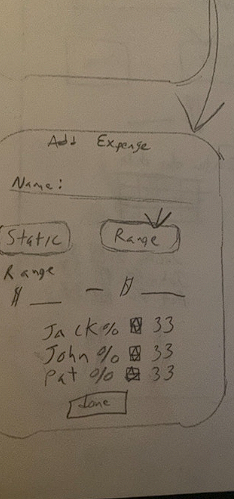 Add Expense
Name:
Static Range
Range
$ __ - $ __
Jack % 33
John % 33
Pat % 33
done